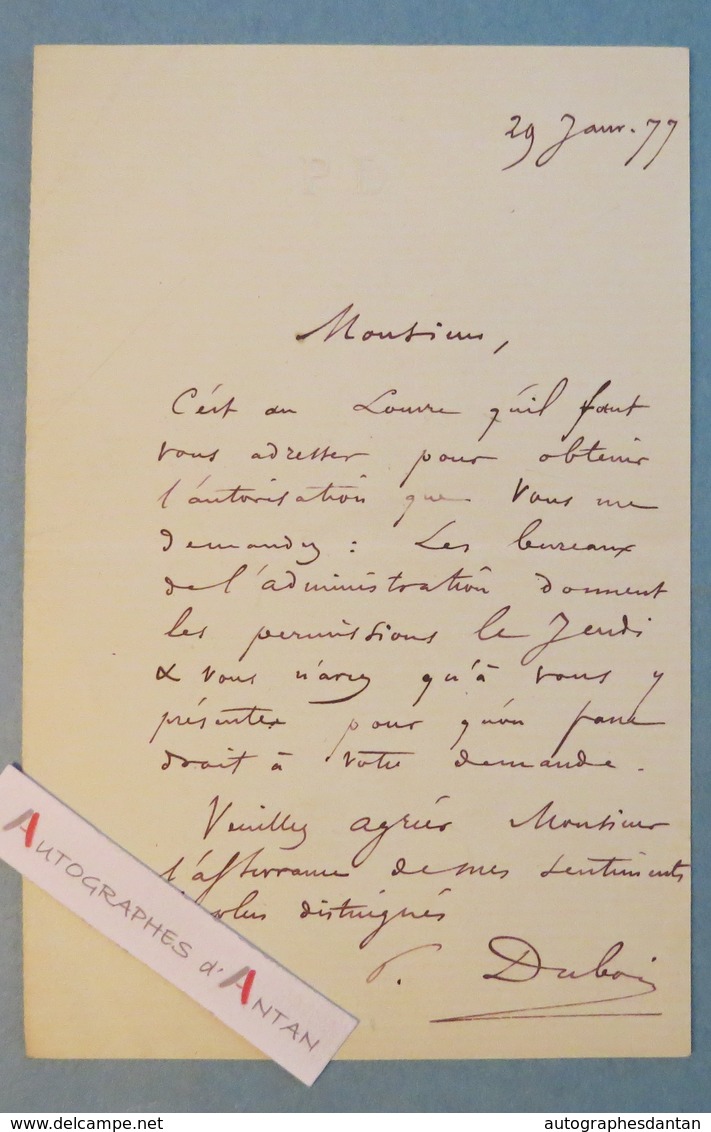 29 Janv. 77
Monsieur,
C'est au Louvre qu'il faut
vous adresser pour obtenir
l'autorisation que vous me
demandez : Les bureaux
de l'administration donnent
les permissions le Jeudi
& vous n'avez qu'à vous y
présenter pour qu'on fasse
droit à votre demande.
Veuillez agréer Monsieur
l'assurance de mes sentiments
plus distingués
P. Dubois
AUTOGRAPHES d'ANTAN
www.delcampe.net
autographesdantan